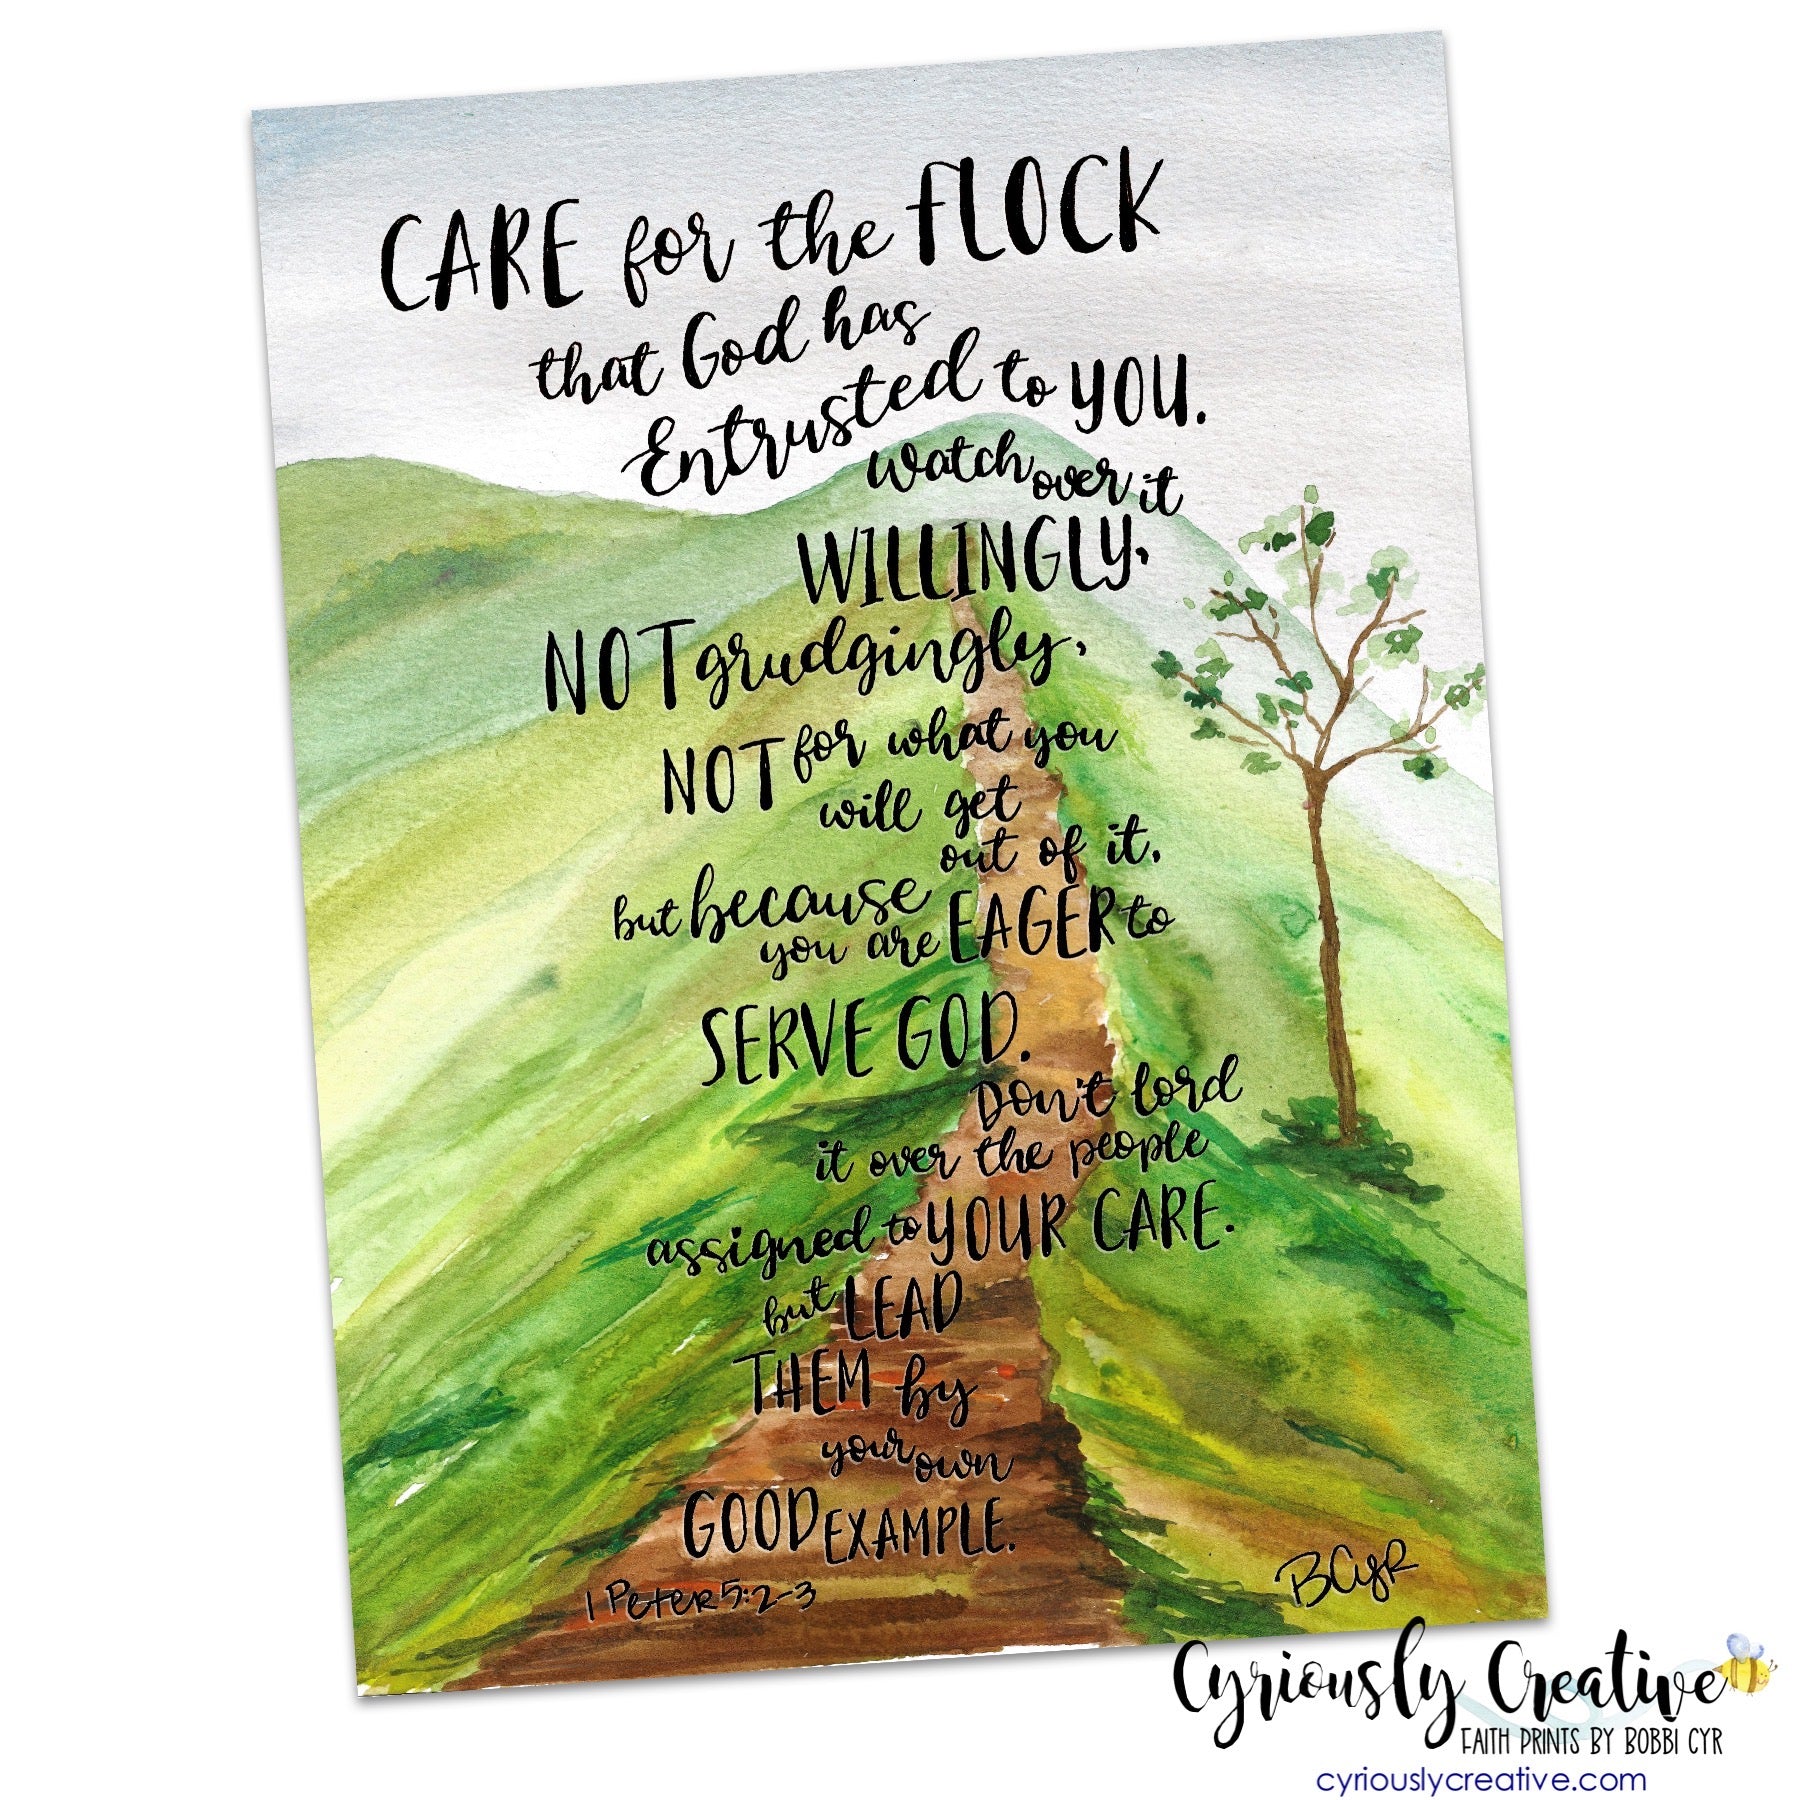 CARE for the FLOCK
that God has
Entrusted to YOU.
Watch over it
WILLINGLY,
NOT grudgingly,
NOT for what you
will get
out of it,
but because
you are EAGER to
SERVE GOD.
Don't lord
it over the people
assigned to YOUR CARE.
but LEAD
THEM by
your own
GOOD EXAMPLE.
1 Peter 5:2-3
BCyR
Cyriously Creative
FAITH PRINTS BY BOBBI CYR
cyriouslycreative.com